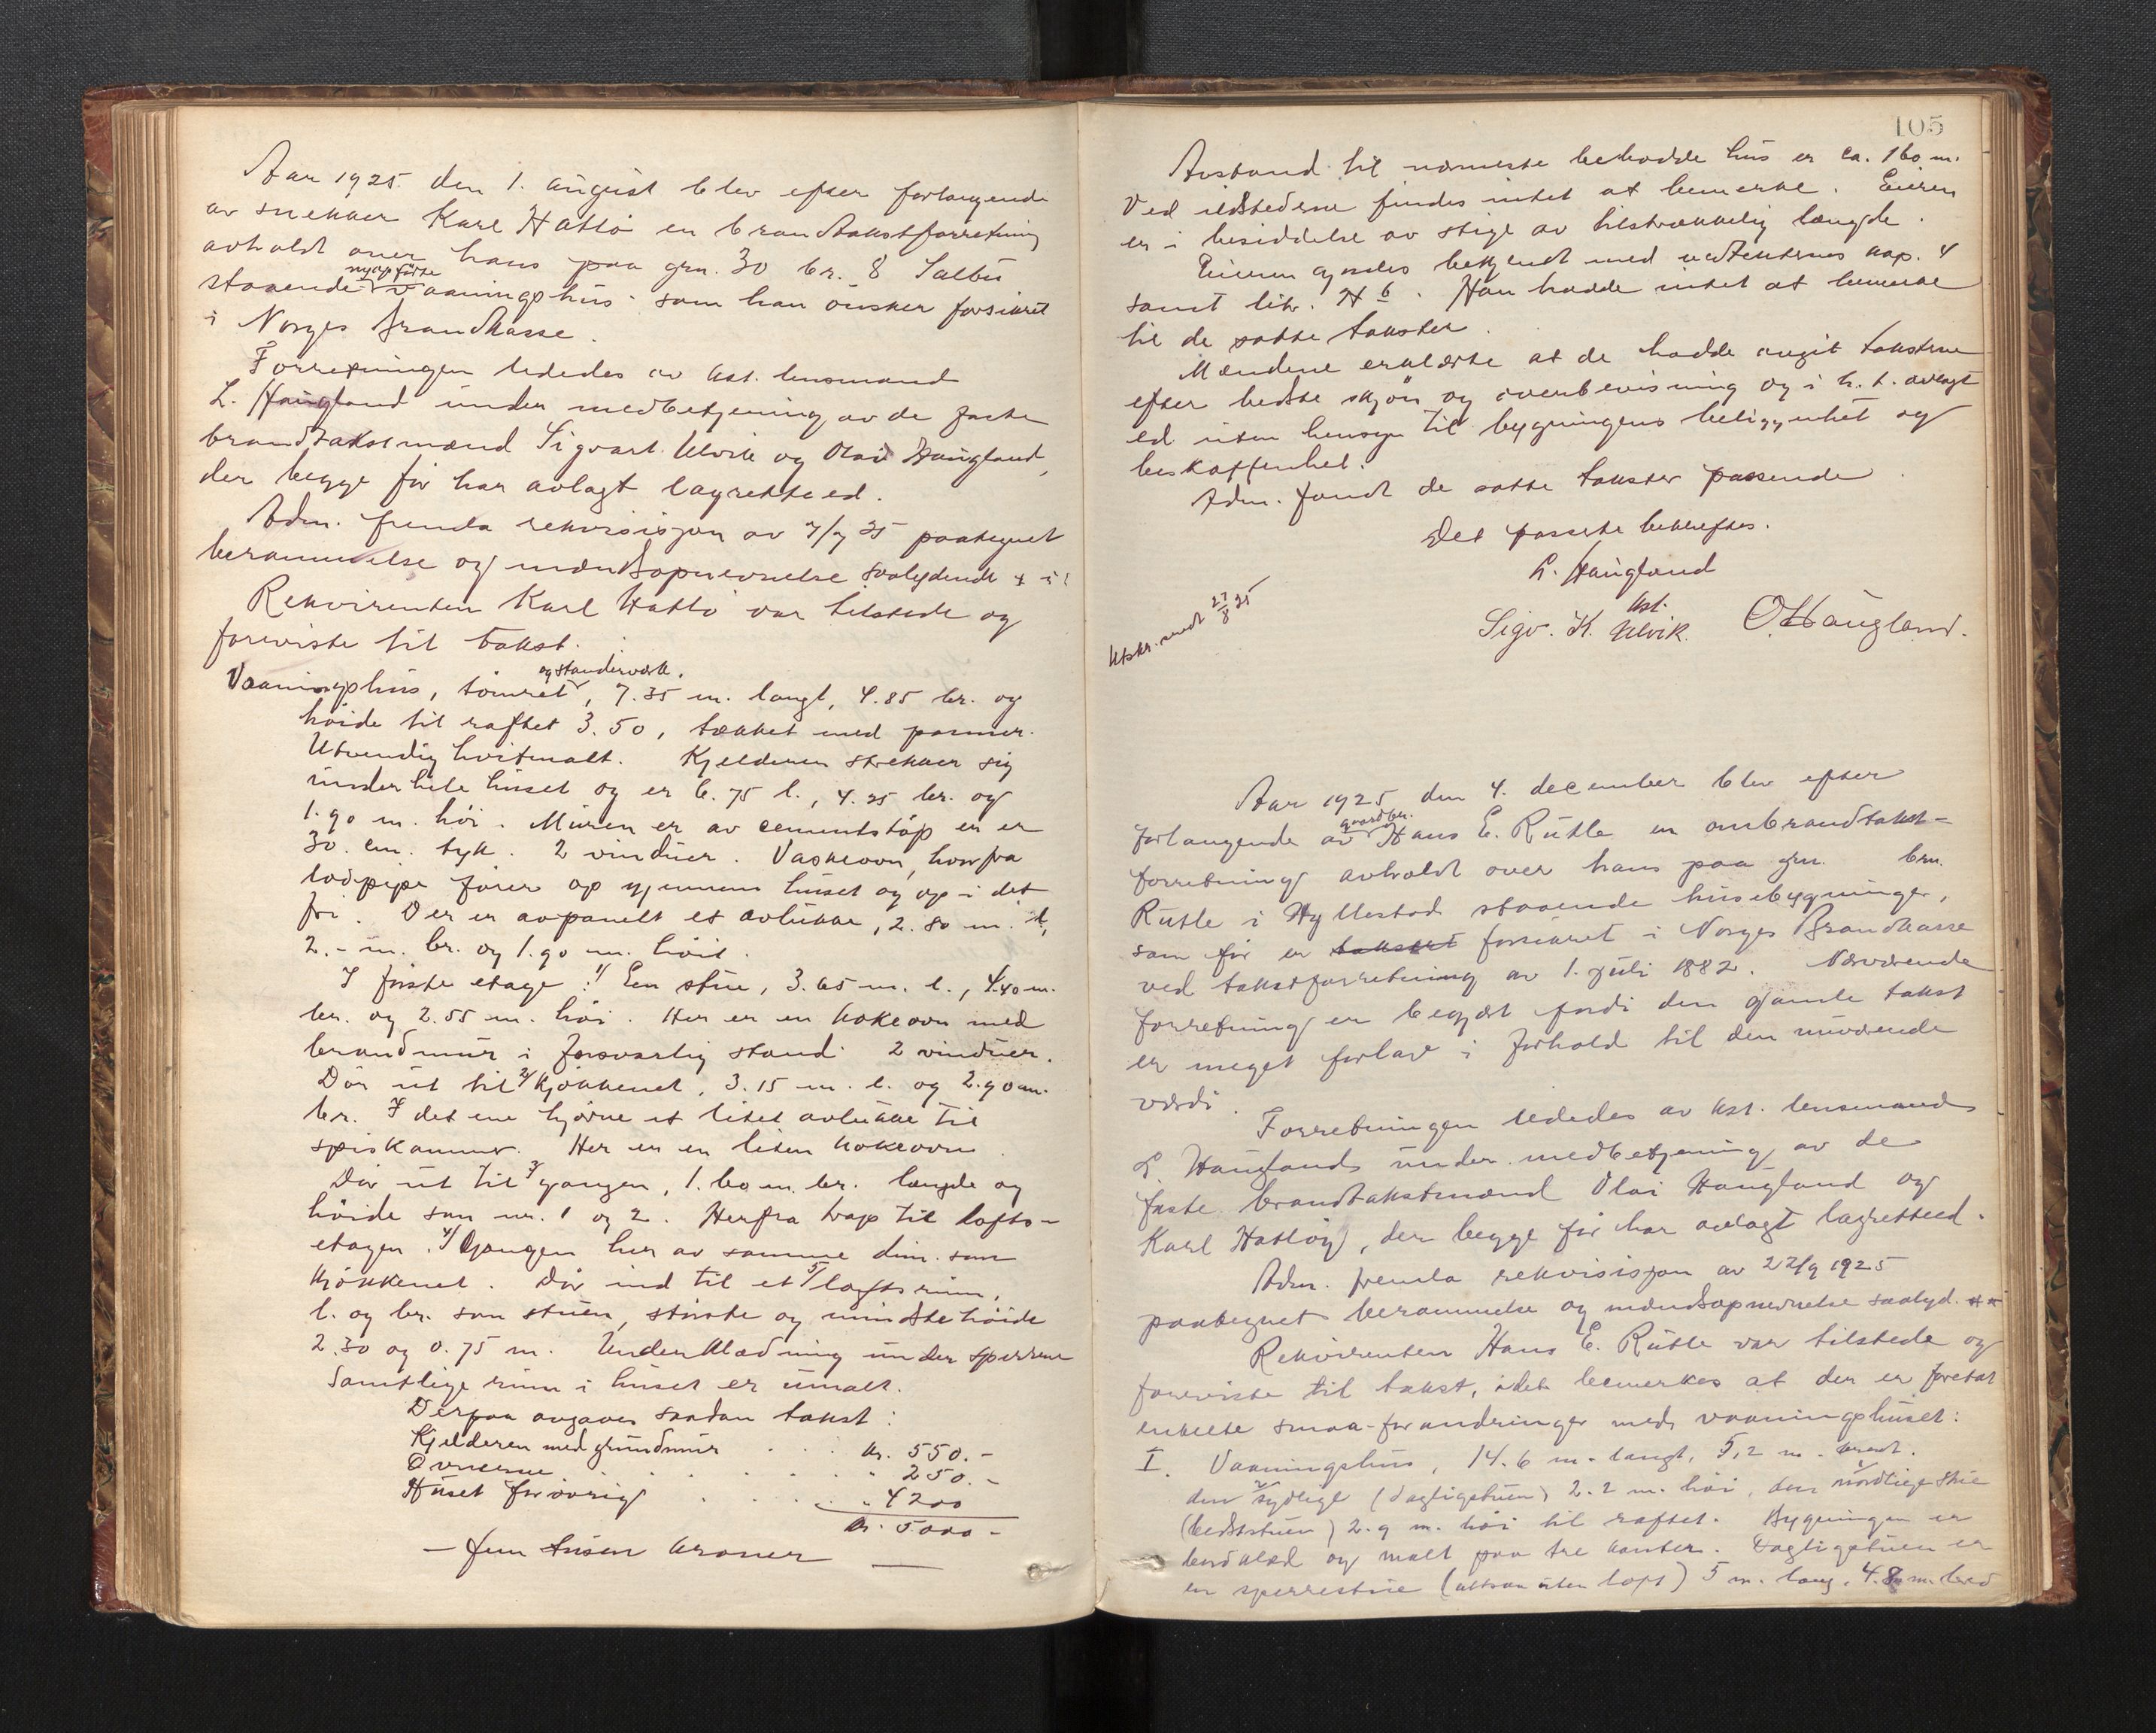 Aar 1925 den 1. august blev efter forlangende
av snekker Karl Hatlö en brandtakstforretning
avholdt over hans paa grn. 30 br. 8 Salbu
nyopförte
staaende vaaningshus som han önsker forsikret
i Norges Brandkasse.
Forretningen lededes av kst. lensmand
L. Haugland under medbetjening av de faste
brandtakstmænd Sigvart Ulvik og Olai Haugland,
der begge för har avlagt lagretteed.
Adm. fremla rekvisisjon av 7/7 25 paategnet
berammelse og mændsopnevnelse saalydende
Rekvirenten Karl Hatlö var tilstede og
foreviste til takst.
og standerverk.
Vaaningshus, tömret, 7.35 m. langt, 4.85 br. og
höide til raftet 3.50, tækket med panner.
Utvendig hvitmalt. Kjelderen strekker sig
under hele huset og er 6.75 l., 4.25 br. og
1.90 m. höi. Muren er av cementstöp en er
30. cm. tyk. 2 vinduer. Vaskeovn, hvorfra
rodpipe förer op gjennem huset og op i det
fri. Der er avpanelt et avlukke, 2.80 m. l,
2.- m. br. og 1.90 m. höit.
I förste etage: 1/ En stue, 3.65 m. l., 4.40 m.
br. og 2.55 m. höi. Her er en kokeovn med
brandmur i forsvarlig stand. 2 vinduer.
Dör ut til 2/ kjökkenet, 3.15 m. l. og 2.90 m.
br. I det ene hjörne et litet avlukke til
spiskammer. Her er en liten kokeovn.
Dör ut til 3/ gangen, 1.60 m. br. længde og
höide som nr. 1 og 2. Herfra trap til lofts-
etagen. 4/ Gangen her av samme dim. som
kjökkenet. Dör ind til et 5/ loftsrum,
l. og br. som stuen, störste og mindste höide
2.30 og 0.75 m. Underklædning under sperrene
Samtlige rum i huset er umalt.
Derpaa avgaves saadan takst:
Kjelderen med grundmur . . . kr. 550.-
Ovnene . . . . . . " 250.-
Huset forövrig . . . . " 4200
kr. 5000-
- fem tusen kroner -
105
Avstand til nærmeste bebodde hus er ca. 160 m.
Ved ildstederne findes intet at bemerke. Eieren
er i besiddelse av stige av tilstrækkelig længde.
Eieren gjordes bekjendt med vedtekternes kap. 4
samt litr. H 6. Han hadde intet at bemerke
til de satte takster.
Mændene erklærte at de hadde avgit taksterne
efter bedste skjön og overbevisning og i h. t. avlagt
ed uten hensyn til bygningens beliggenhet og
beskaffenhet.
Adm. fandt de satte takster passende.
Det passerte bekreftes.
L. Haugland
kst.
Sigv. K. Ulvik. O. Haugland.
Utskr. sendt 27/8 25
Aar 1925 den 4. december blev efter
gaardbr.
forlangende av Hans E. Rutle en ombrandtakst-
forretning avholdt over hans paa grn. brn.
Rutle i Hyllestad staaende husebygninger,
som för er taksert forsikret i Norges Brandkasse
ved takstforretning av 1. juli 1882. Nærværende
forretning er begjært fordi den gamle takst
er meget forlav i forhold til den nuværende
værdi.
Forretningen lededes av kst. lensmand
L. Haugland under medbetjening av de
faste brandtakstmænd Olai Haugland og
Karl Hatlöy, der begge för har avlagt lagretteed.
Adm. fremla rekvisisjon av 22/9 1925
paategnet berammelse og mændsopnevnelse saalyd.
Rekvirenten Hans E. Rutle var tilstede og
foreviste til takst, idet bemerkes at der er foretat
enkelte smaa-forandringer med vaaningshuset:
I. Vaaningshus, 14.6 m. langt, 5,2 m. bredt.
den sydlige (dagligstuen) 2.2 m. höi, den nordlige stue
(bedststuen) 2.9 m. höi til raftet. Bygningen er
bordklæd og malt paa tre kanter. Dagligstuen er
en sperrestue (altsaa uten loft) 5 m. lang, 4.8 m. bred